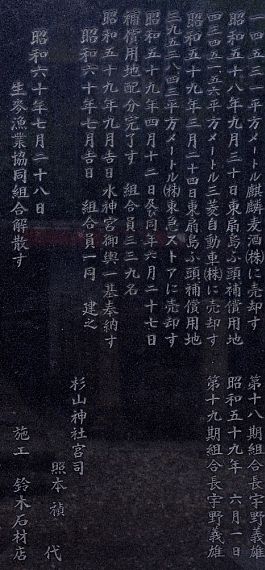 一四五三一平方メートル麒麟麦酒(株)に売却す
昭和五十八年九月三十日東扇島ふ頭補償用地
四三四五一五六平方メートル三菱自動車(株)に売却す
昭和五十九年三月二十四日東扇島ふ頭補償用地
三九五二八四三平方メートル(株)東急ストアに売却す
昭和五十九年四月十二日及び同年六月二十七日
補償用地配分完了す 組合員三三九名
昭和五十九年九月吉日水神宮御輿一基奉納す
昭和六十年七月吉日 組合員一同 建之
昭和六十年七月二十八日
生麥漁業協同組合解散す
第十八期組合長宇野義雄
昭和五十九年 六月一日
第十九期組合長宇野義雄
杉山神社宮司
照本 禎 代
施工 鈴木石材店